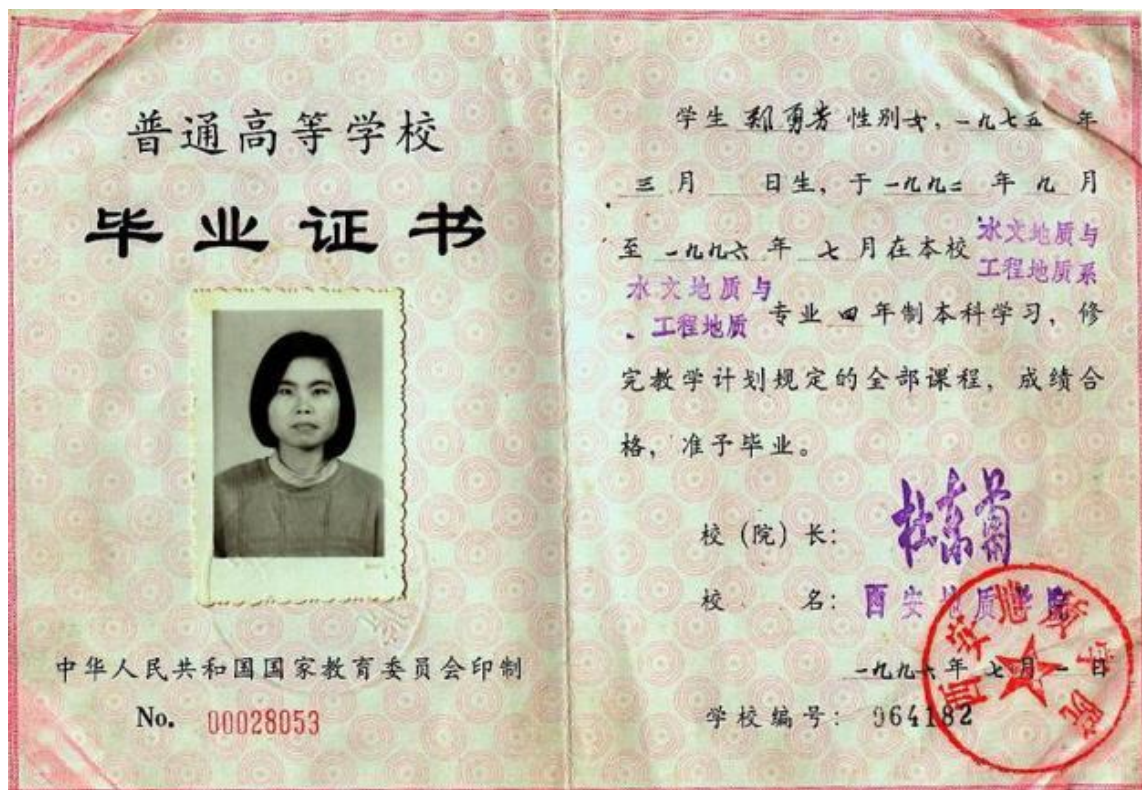 普通高等学校
毕业证书
中华人民共和国国家教育委员会印制
No. 00028053
学生 郑勇芳 性别女，一九七五 年
三月 日生，于 一九九二 年 九 月
至 一九九六 年 七 月在本校 水文地质与工程地质系
水文地质与工程地质 专业 四 年制本科学习，修
完教学计划规定的全部课程，成绩合
格，准予毕业。
校（院）长：
校 名：西安地质学院
一九九六年 七月 一日
学校编号：964182
西安地质学院